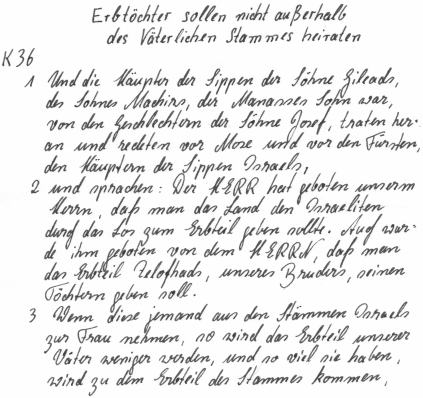 Erbtöchter sollen nicht außerhalb
des Väterlichen Stammes heiraten
K 36
1 Und die Häupter der Sippen der Söhne Gileads,
des Sohnes Machirs, der Manasses Sohn war,
von den Geschlechtern der Söhne Josef, traten her-
an und redeten vor Mose und vor den Fürsten,
den Häuptern der Sippen Israels,
2 und sprachen: Der HERR hat geboten unserm
Herrn, daß man das Land den Israeliten
durch das Los zum Erbteil geben sollte. Auch wur-
de ihm geboten von dem HERRN, daß man
das Erbteil Zelofhads, unseres Bruders, seinen
Töchtern geben soll.
3 Wenn diese jemand aus den Stämmen Israels
zur Frau nehmen, so wird das Erbteil unserer
Väter weniger werden, und so viel sie haben,
wird zu dem Erbteil des Stammes kommen,